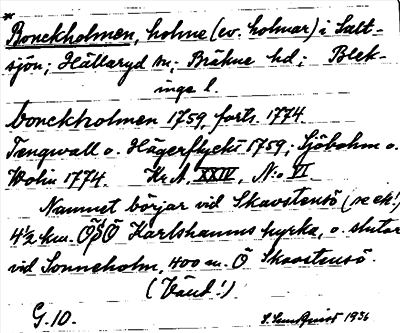 *
Bonckholmen, holme (ev. holmar) i Salt-
sjön; Hällaryd sn; Bräkne hd; Blek-
inge l.
bonckholmen 1759, forts. 1774.
Tengwall o. Hägerflycht 1759; Sjöbohm o.
Wolin 1774. Kr. A. XXIV, N:o VI.
Namnet börjar vid Skavstensö (se ek!)
4½ km. ÖSÖ Karlshamns kyrka, o. slutar
vid Sonneholm, 400 m. Ö Skavstensö.
(Vänd!)
G.10. S. Sundqvist 1936